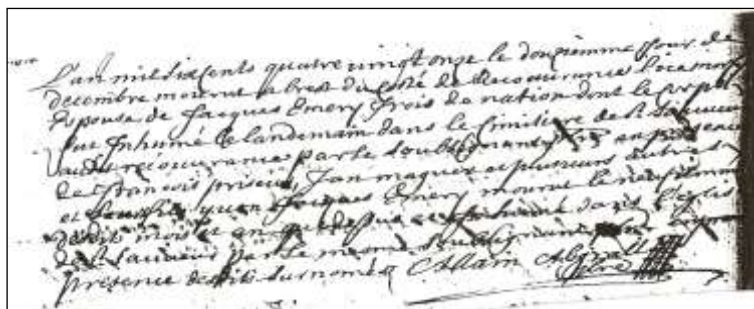 L'an mil six cents quatre vingt onze le douziemme jour de
decembre mourut a brest du costé de Recouvrance
Espouse de Jacques Emery Irois de nation dont le corps
fut Inhumé le landemain dans le Cimitiere de St Sauveur
audit recouvrance par le soubsignant en presence
de francois Jan et plusieurs autres
et Jacques Emery mourut le neufiemme
dudit mois et an que dessus et Inhumé dans l'eglise
de St Sauveur par le mesme soubsignant en
presence desdits surnomés Allain